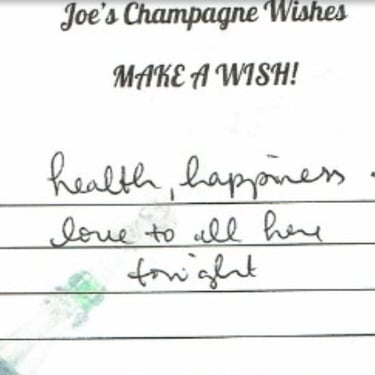 Joe's Champagne Wishes
MAKE A WISH!
health, happiness
love to all here
tonight